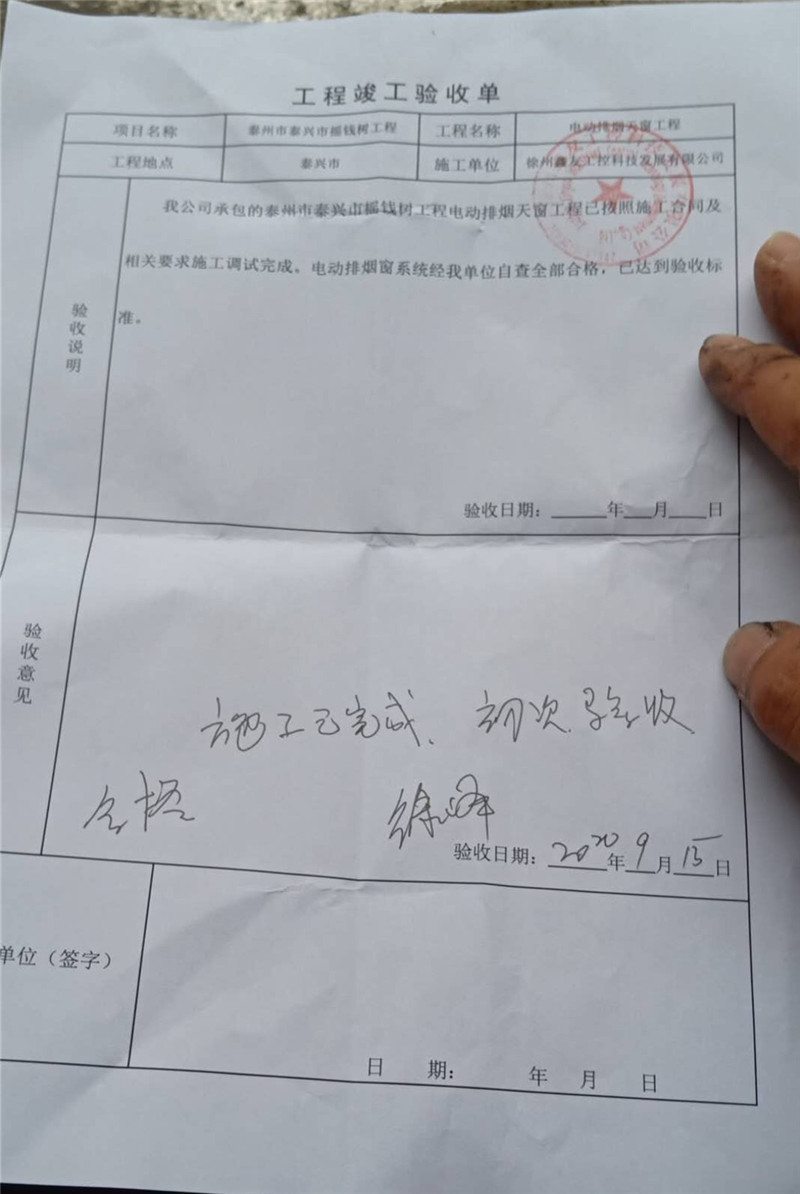 工程竣工验收单
项目名称 泰州市泰兴市摇钱树工程 工程名称 电动排烟天窗工程
工程地点 泰兴市 施工单位 徐州鑫友工控科技发展有限公司
验收说明
我公司承包的泰州市泰兴市摇钱树工程电动排烟天窗工程已按照施工合同及
相关要求施工调试完成。电动排烟窗系统经我单位自查全部合格,已达到验收标
准。
验收日期: 年 月 日
验收意见
施工已完成、初次验收
合格 徐峰
验收日期: 2020年9月15日
单位(签字)
日 期: 年 月 日